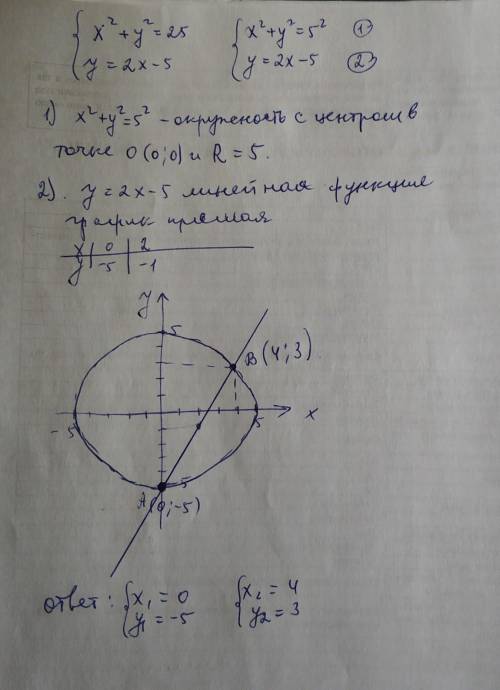 { x² + y² = 25 { x² + y² = 5² ①
{ y = 2x - 5 { y = 2x - 5 ②
1) x² + y² = 5² - окружность с центром в
точке O (0; 0) и R = 5.
2). y = 2x - 5 линейная функция
график прямая
x | 0 | 2
y | -5 | -1
y
5
B (4; 3).
-5 5 x
-5
A (0; -5)
ответ: { x₁ = 0 { x₂ = 4
{ y₁ = -5 { y₂ = 3